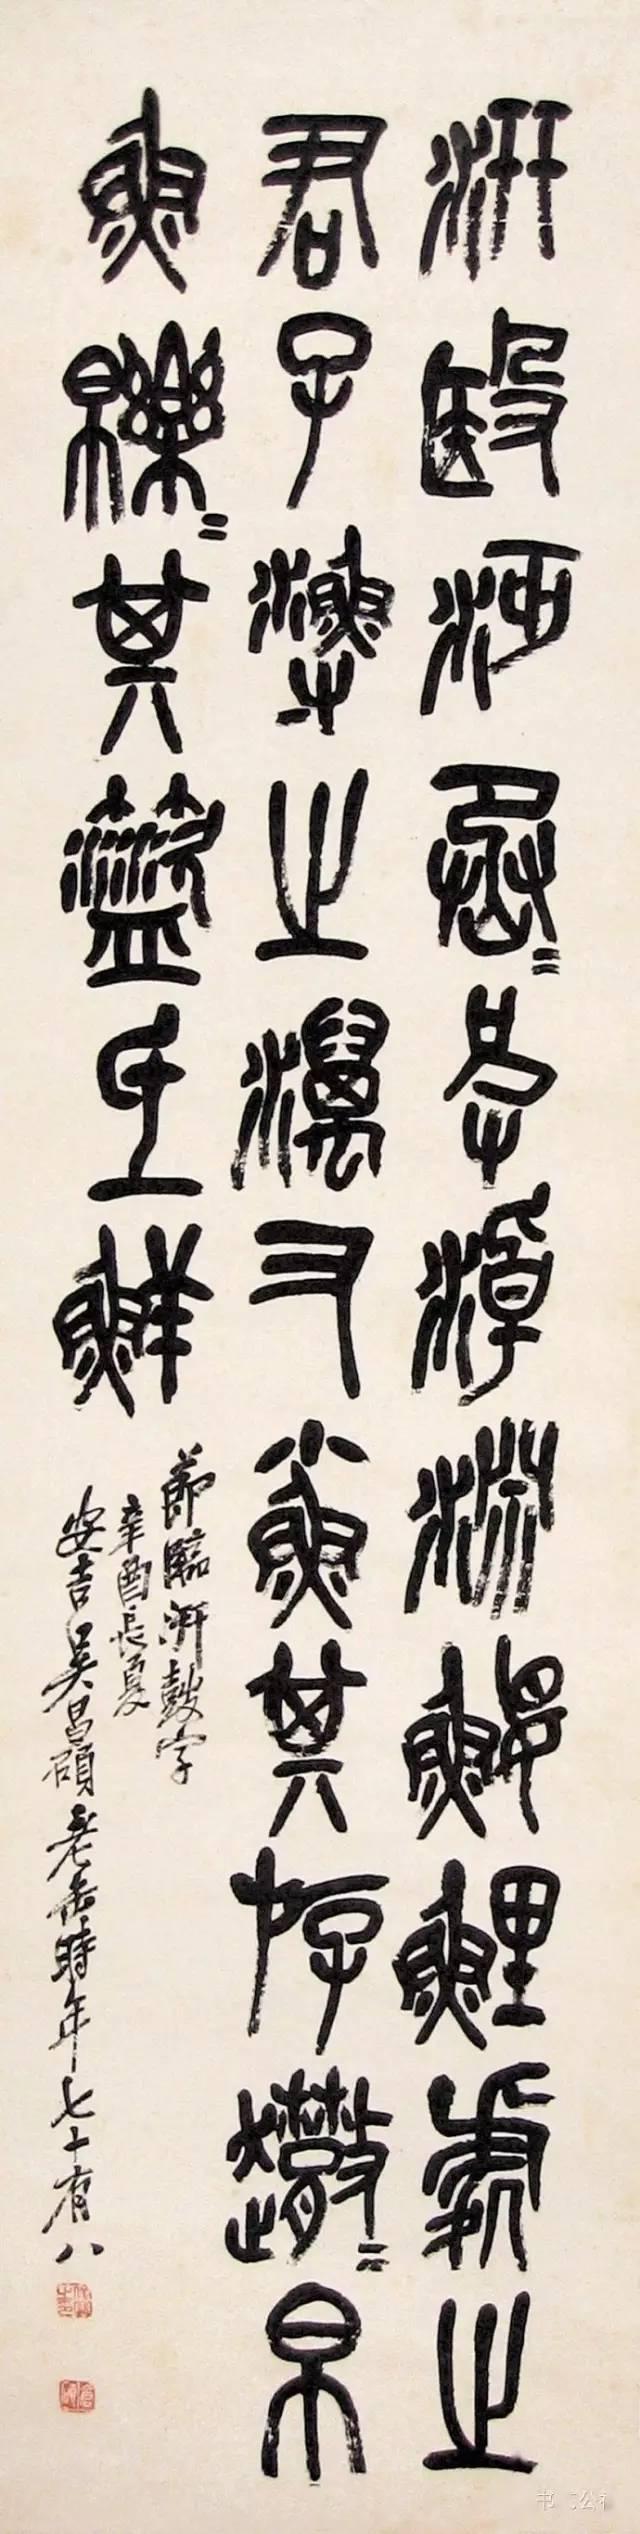 汧殹沔丞〓皮淖淵鰋鯉處之
君子漁之澫又小魚其斿帛
魚皪〓其盜氐鮮
節臨汧鼓字
辛酉長夏
安吉吳昌碩老缶時年七十有八
俊卿之印
倉碩